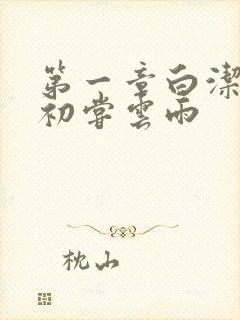 第一章白潔
初嘗雲雨
枕山